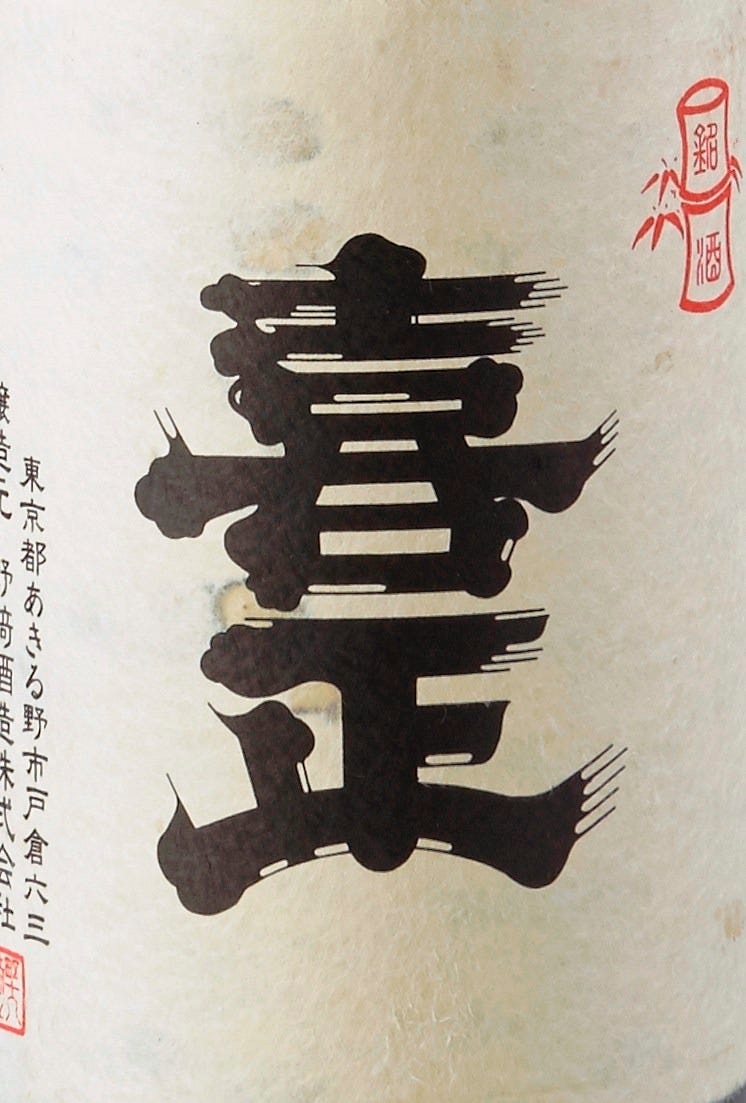 銘酒
喜正
東京都あきる野市戸倉六三
醸造元 野﨑酒造株式会社